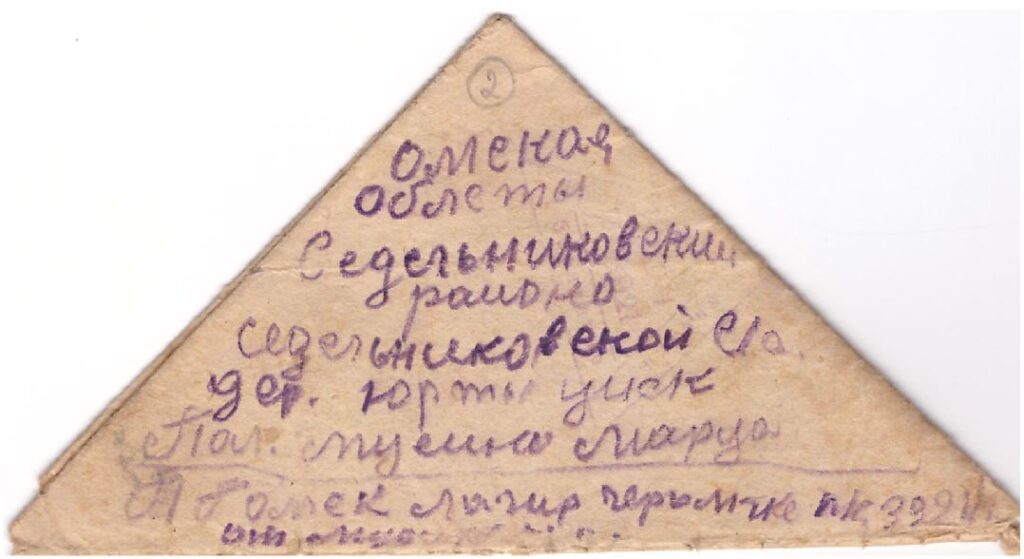 2
Омская
облсты
Седельниковский
района
Седельниковской С/а.
дер. юрты уиск
Пол. Мусина Марца
Омск лагир черомтке пк 999
от